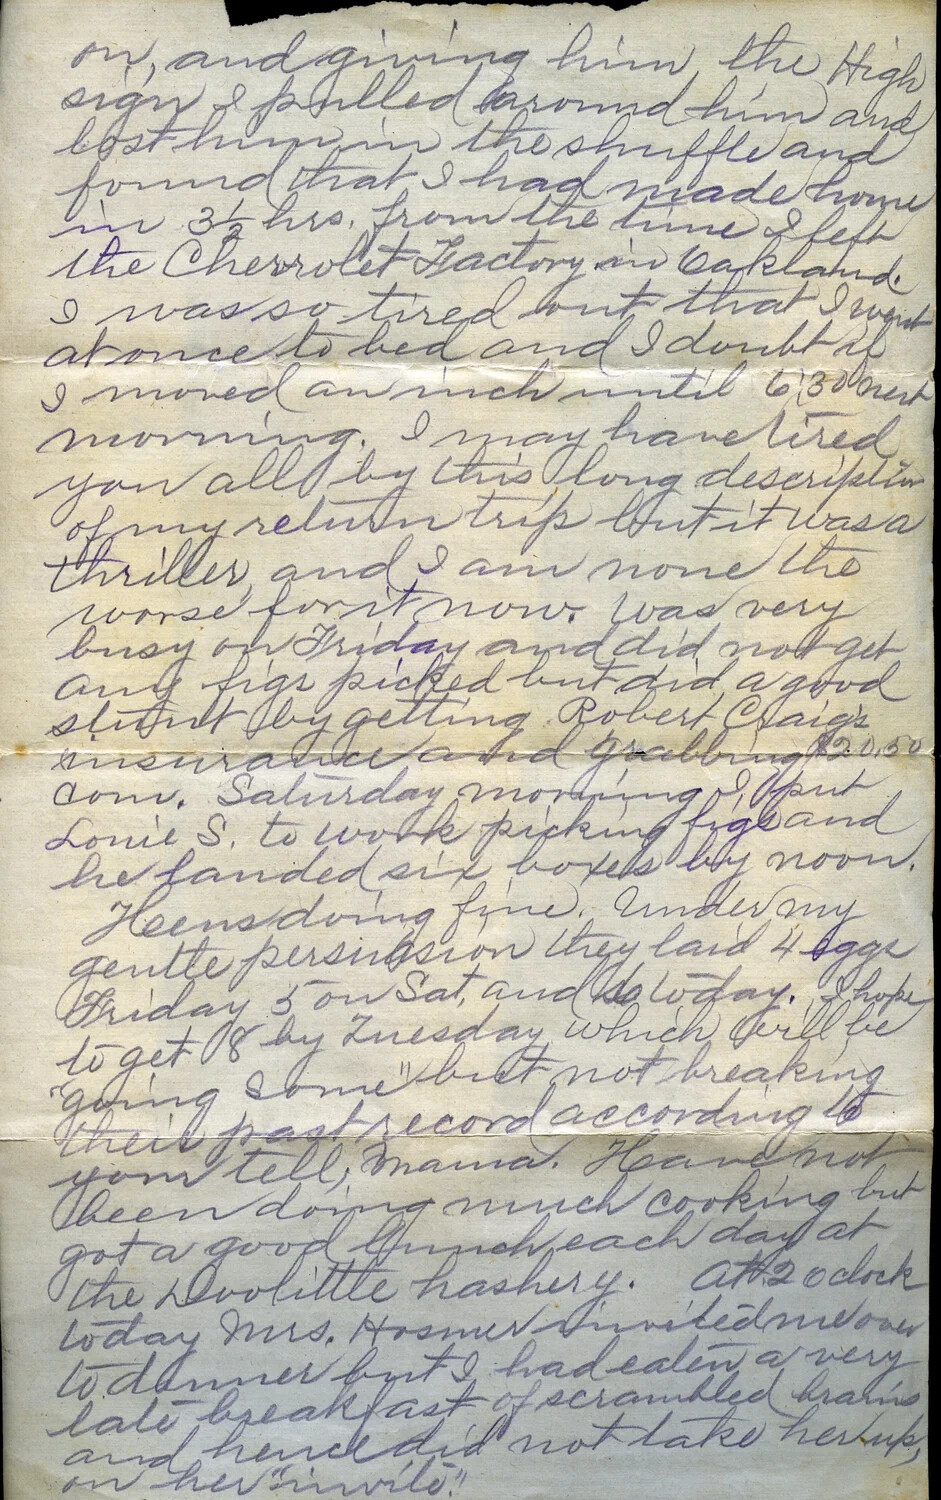 on, and giving him the High
sign I pulled around him and
lost him in the shuffle and
found that I had made home
in 3½ hrs. from the time I left
the Chevrolet Factory in Oakland.
I was so tired out that I went
at once to bed and I doubt if
I moved an inch until 6:30 next
morning. I may have tired
you all by this long description
of my return trip but it was a
thriller, and I am none the
worse for it now. Was very
busy on Friday and did not get
any figs picked but did a good
stunt by getting Robert Craig's
insurance and grabbing $20.50
com. Saturday morning I put
Louie S. to work picking figs and
he landed six boxes by noon.
Heens doing fine. Under my
gentle persuasion they laid 4 eggs
Friday 5 on Sat, and today. I hope
to get 8 by Tuesday which will be
"going some" but not breaking
their past record according to
your tell, Mama. Have not
been doing much cooking but
got a good lunch each day at
the Doolittle hashery. At 2 oclock
today Mrs. Hosmer invited me over
to dinner but I had eaten a very
late breakfast of scrambled brains
and hence did not take her up,
on her "invite."